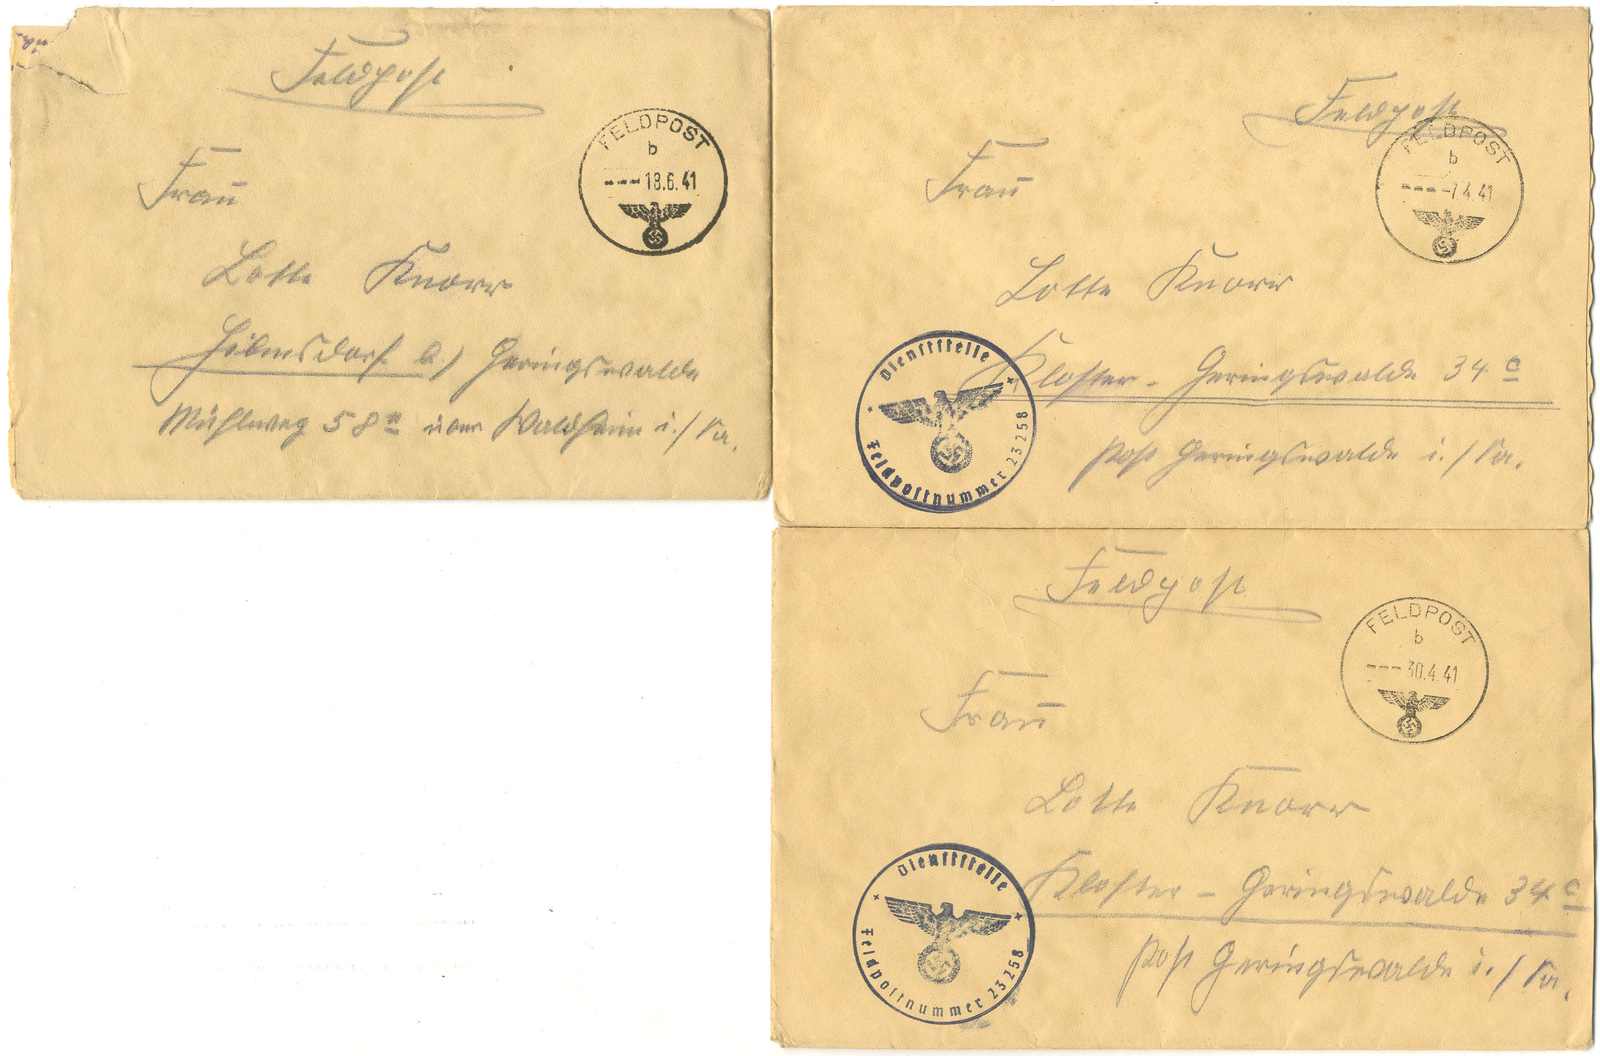 Feldpost
FELDPOST
b
--- 18.6.41
Frau
Lotte Knorr
Hilmsdorf b./ Geringswalde
Mühlweg 58 über Waldheim i./Sa.
Feldpost
FELDPOST
b
---- 7.4.41
Frau
Lotte Knorr
Kloster - Geringswalde 34 c
Post Geringswalde i./Sa.
Dienststelle
Feldpostnummer 23258
Feldpost
FELDPOST
b
--- 30.4.41
Frau
Lotte Knorr
Kloster - Geringswalde 34 c
Post Geringswalde i./Sa.
Dienststelle
Feldpostnummer 23258